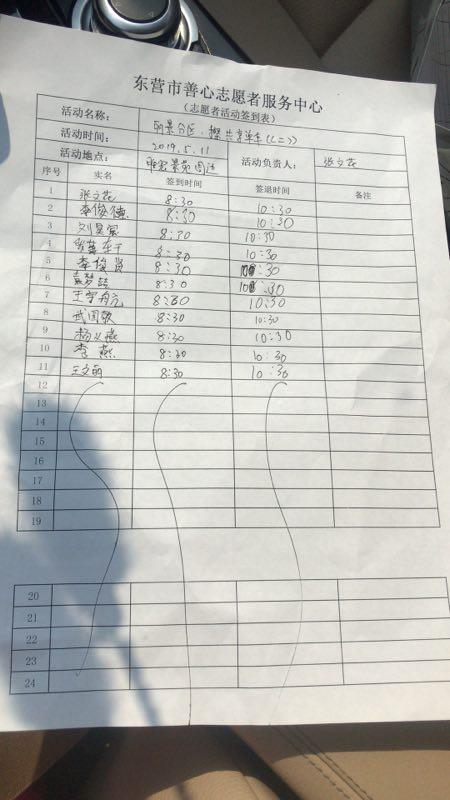 东营市善心志愿者服务中心
(志愿者活动签到表)
活动名称: 丽景分区·擦共享单车(二)
活动时间: 2019.5.11
活动地点: 景苑周边 活动负责人: 张文花
序号 实名 签到时间 签退时间 备注
1 张文花 8:30 10:30
2 李俊德 8:30 10:30
3 刘昊宸 8:30 10:30
4 8:30 10:30
5 李俊贤 8:30 10:30
6 袁梦喆 8:30 10:30
7 王宇舟 8:30 10:30
8 武国敏 8:30 10:30
9 杨义燕 8:30 10:30
10 李燕 8:30 10:30
11 王文丽 8:30 10:30
12
13
14
15
16
17
18
19
20
21
22
23
24